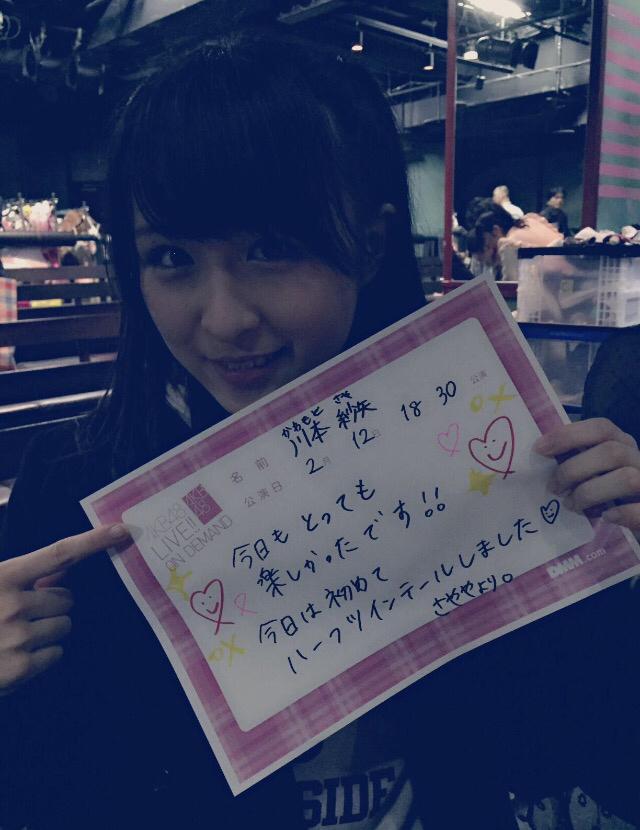 AKB48
LIVE!!
ON DEMAND
AKB
48
名前
かわもと さや
川本 紗矢
公演日
2月 12日 18 30 公演
今日もとっても
楽しかったです!!
今日は初めて
ハーフツインテールしました♡
さややより。
DMM.com
SIDE